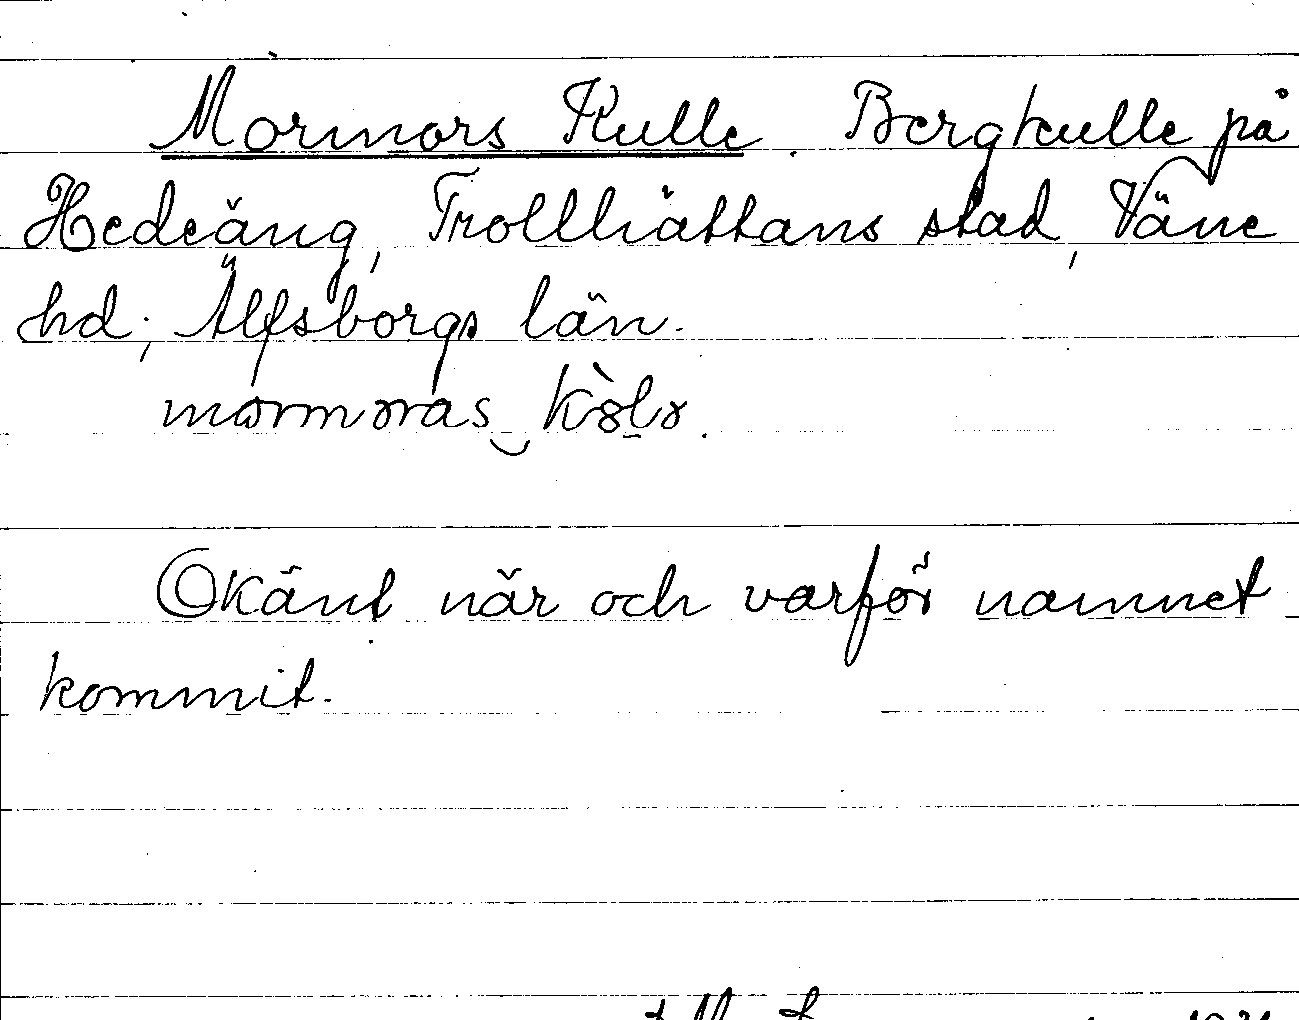 Mormors Kulle. Bergkulle på
Hedeäng, Trollhättans stad, Väne
hd, Älfsborgs län.
Okänt när och varför namnet
kommit.